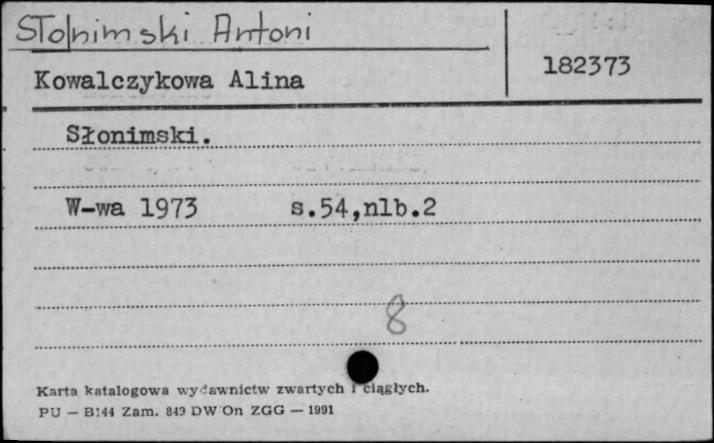 Słonimski Antoni
Kowalczykowa Alina
182373
Słonimski.
W-wa 1973 s.54,nlb.2
8
Karta katalogowa wydawnictw zwartych i ciągłych.
PU — B144 Zam. 849 DW On ZGG — 1991